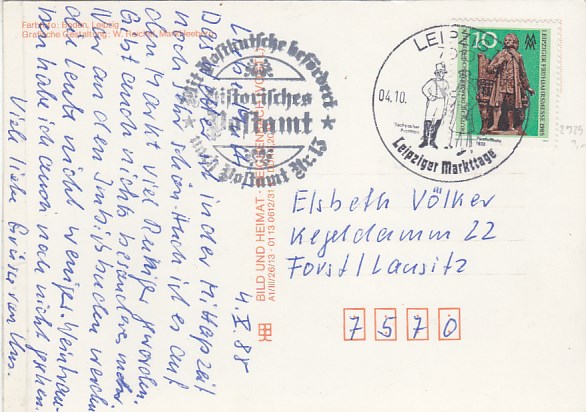 Farbfoto: Bogen, Leipzig
Grafische Gestaltung: W. Reichel, Markkleeberg
4. X 88
Das Wetter ist in der M. Hapzeit
noch sehr schön. Auch ist es auf
dem Markt viel Ruhiger geworden.
Gibt auch nichts besonderes mehr
Nur an den Imbißbuden werden
die Leute nicht weniger. Weintrau-
ben habe ich auch noch nicht gesehen.
Viele liebe Grüße von Uns.
Mit Postkutsche befördert
Historisches
Postamt
nach Postamt Nr. 13
BILD UND HEIMAT
A1/III/26/13 01 13 0612/31
LEIPZIG
04.10.
Leipziger Markttage
10
DDR
LEIPZIGER FRÜHJAHRSMESSE 1985
2929
Elsbeth Völker
Kegeldamm 22
Forst/Lausitz
7570